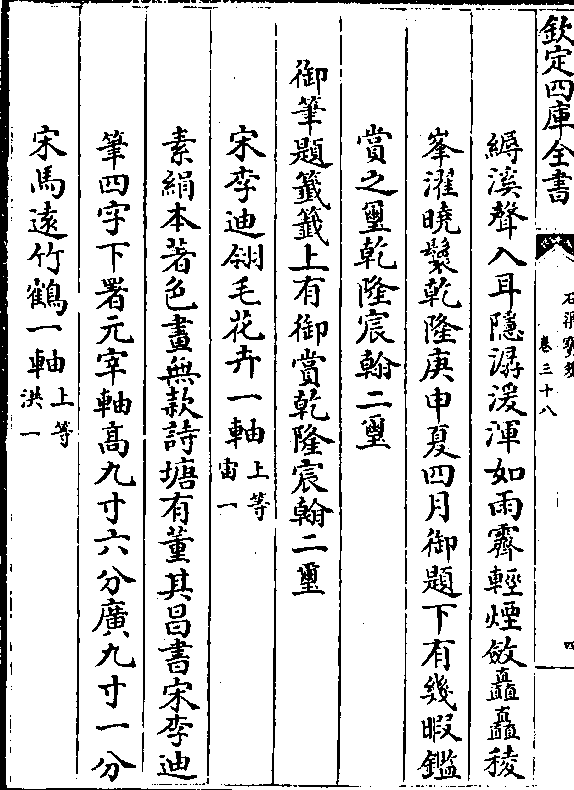 欽定四庫全書
石渠寶笈
卷三十八
四
縟溪聲入耳隱潺湲渾如雨霽輕煙斂矗矗稜
峯濯曉鬟乾隆庚申夏四月御題下有幾暇鑑
賞之璽乾隆宸翰二璽
御筆題籤籤上有御賞乾隆宸翰二璽
宋李迪翎毛花卉一軸上等宙一
素絹本著色畫無款詩塘有董其昌書宋李迪
筆四字下署元宰軸高九寸六分廣九寸一分
宋馬遠竹鶴一軸上等洪一